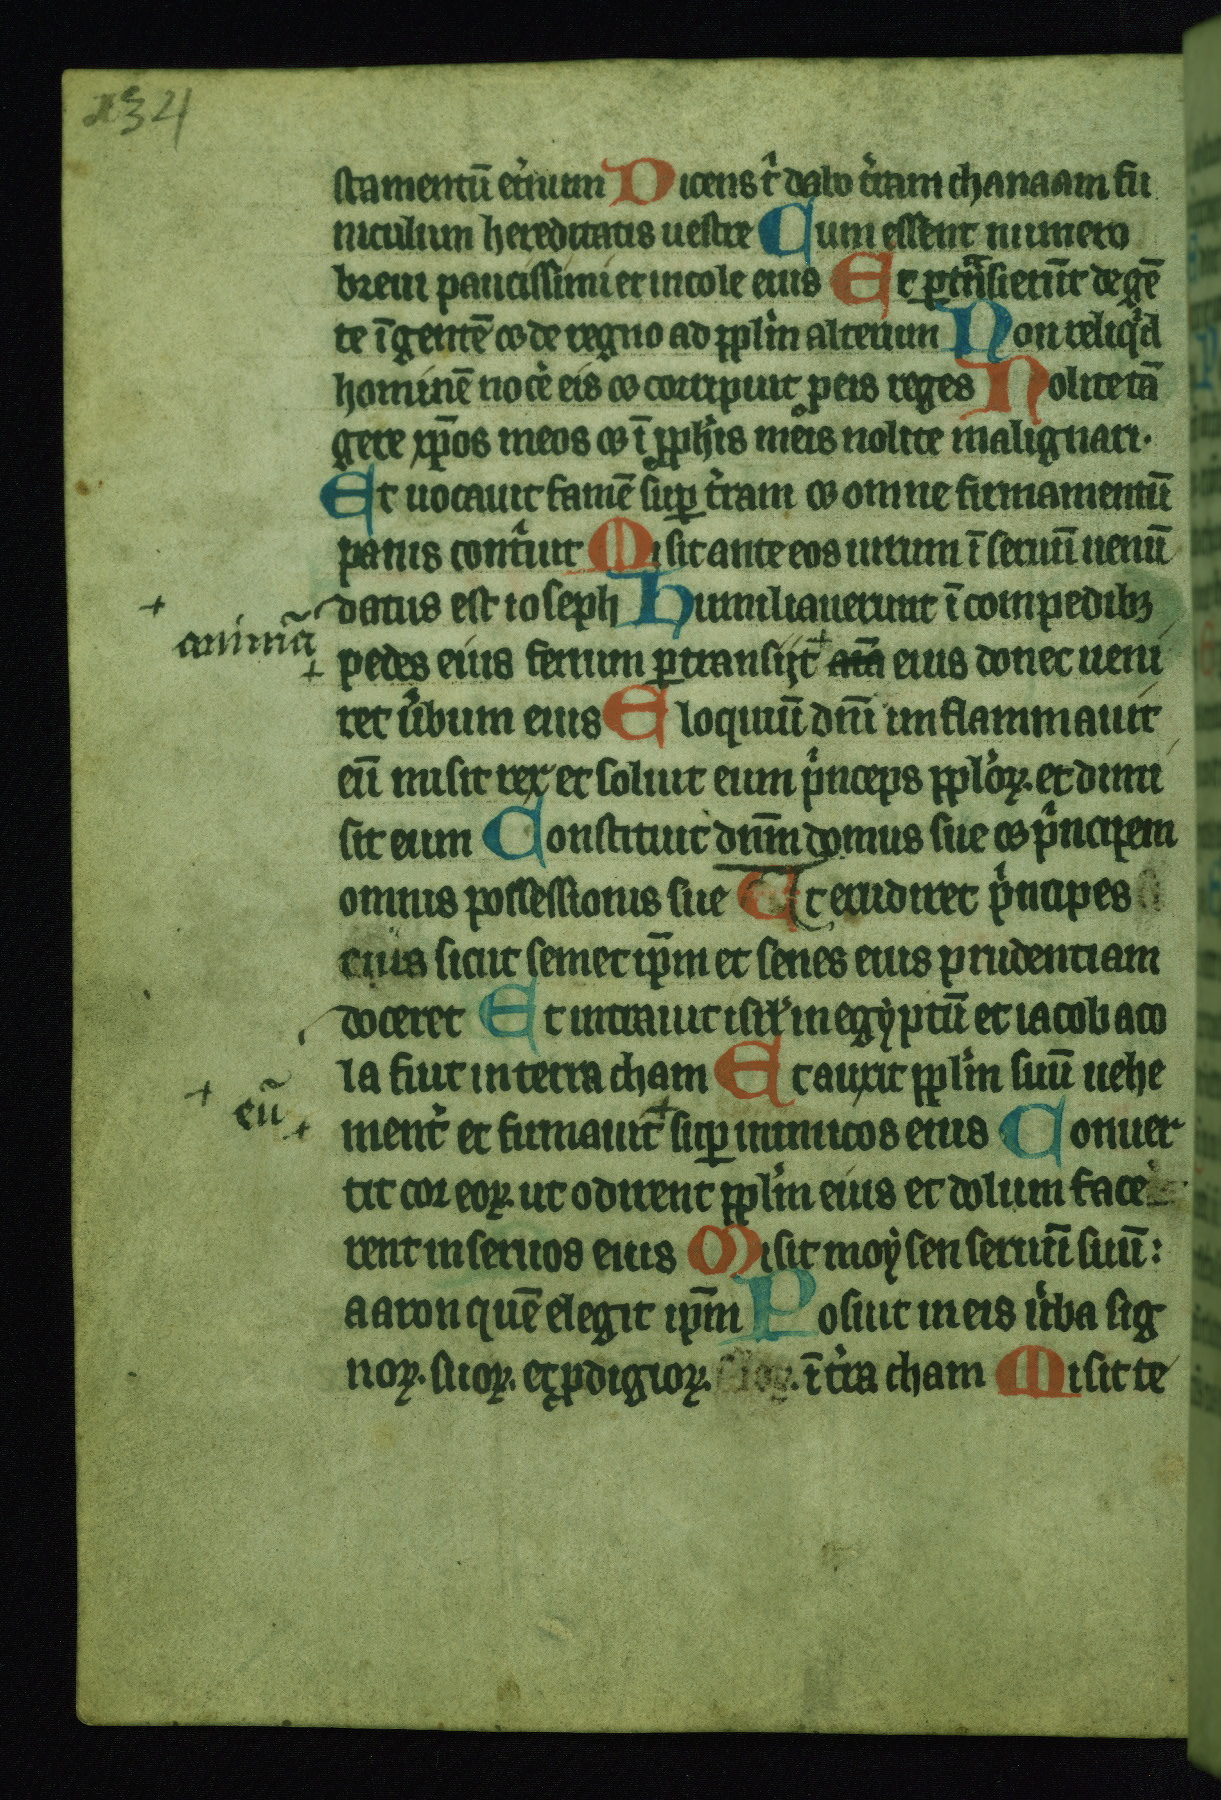 234
stamentū et'num Dicens t' dabo t'ram chanaam fu
niculum hereditatis uestre Cum essent numero
breui paucissimi et incole eius Et ꝑtͣnsierūt de gē
te ī gentē ⁊ de regno ad ppl'm alterum Non reliqⁱd
hominē noce' eis ⁊ corripuit ꝑ eis reges Nolite tā
gere xp̄os meos ⁊ ī ꝓph'is meis nolite malignari.
Et uocauit famē suꝑ t'ram ⁊ omne firmamentū
panis cont'uit Misit ante eos uirum ī seruū uenū
datus est ioseph Humiliauerunt ī compedibꝫ
animā
pedes eius ferrum ꝑtransijt + aīa eius donec ueni
ret u'bum eius Eloquiū dn̄i imflammauit
eū misit rex et soluit eum pⁱnceps ppl'oꝝ. et dimi
sit eum Constituit dn̄m domus sue ⁊ pⁱncipem
omnis possessionis sue Ut erudiret pⁱncipes
eius sicut semet ip̄m et senes eius prudentiam
doceret Et intrauit isrl' in egẏptū et iacob aco
la fuit in terra cham Et auxit ppl'm suū uehe
eū
ment' et firmauit + suꝑ inimicos eius Conuer
tit cor eoꝝ. ut odirent ppl'm eius et dolum face
rent in seruos eius Misit moẏsen seruū suū:
aaron quē elegit ip̄m Posuit in eis u'ba sig
noꝝ. suoꝝ. et ꝓdigioꝝ. ī t'ra cham Misit te